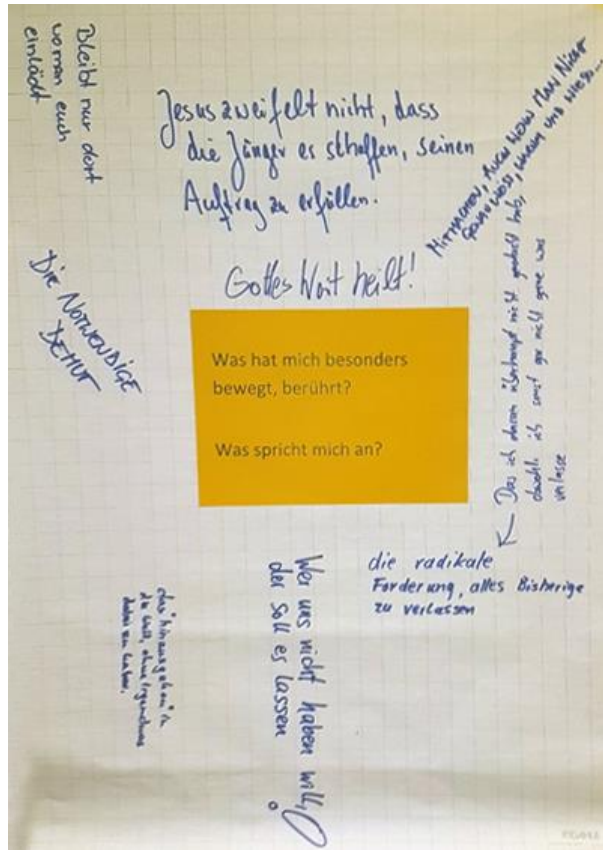 Bleibt nur dort
wo man euch
einlädt
Jesus zweifelt nicht, dass
die Jünger es schaffen, seinen
Auftrag zu erfüllen.
MITMACHEN, AUCH WENN MAN NICHT
GENAU WEISS, WARUM UND WIESO...
Gottes Wort heilt!
DIE NOTWENDIGE
DEMUT
Was hat mich besonders
bewegt, berührt?
Was spricht mich an?
Das ich davon überhaupt nicht gehört hab,
obwohl ich sonst gar nicht gerne was
verlasse
die radikale
Forderung, alles Bisherige
zu verlassen
Wer uns nicht haben will,
der soll es lassen
das hinausgehen in
die Welt, ohne irgendwas
dabei zu haben.